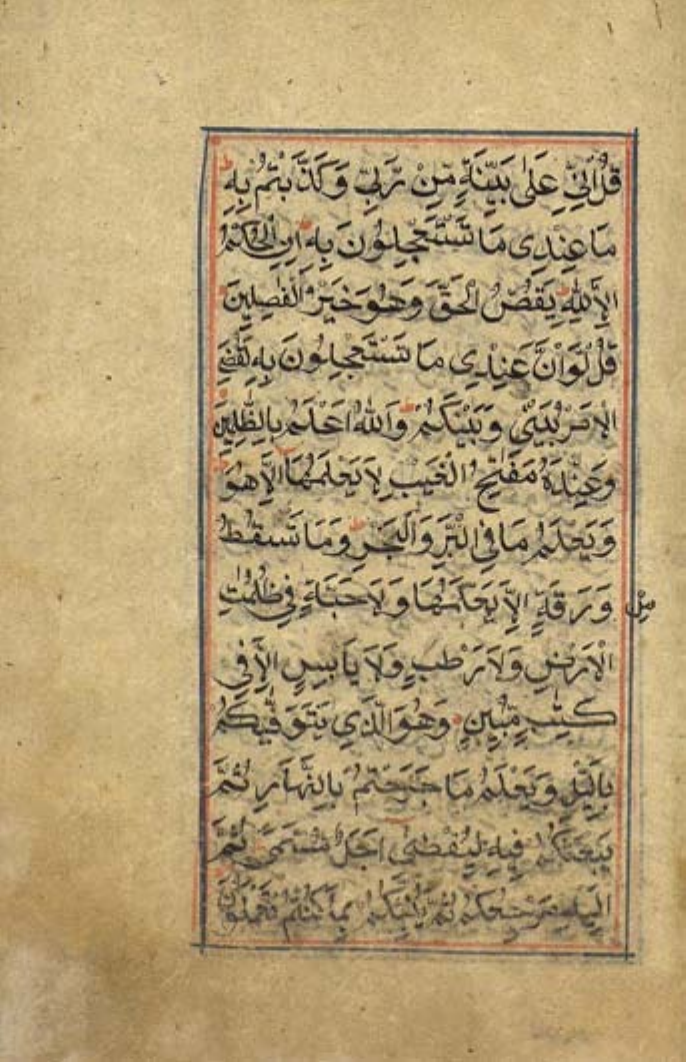 قُلْ اِنِّي عَلٰى بَيِّنَةٍ مِّنْ رَّبِّي وَكَذَّبْتُمْ بِهِ
مَا عِنْدِي مَا تَسْتَعْجِلُونَ بِهِ اِنِ الْحُكْمُ
اِلَّا لِلّٰهِ يَقُصُّ الْحَقَّ وَهُوَ خَيْرُ الْفٰصِلِينَ
قُلْ لَوْ اَنَّ عِنْدِي مَا تَسْتَعْجِلُونَ بِهِ لَقُضِيَ
الْاَمْرُ بَيْنِي وَبَيْنَكُمْ وَاللّٰهُ اَعْلَمُ بِالظّٰلِمِينَ
وَعِنْدَهُ مَفَاتِحُ الْغَيْبِ لَا يَعْلَمُهَا اِلَّا هُوَ
وَيَعْلَمُ مَا فِي الْبَرِّ وَالْبَحْرِ وَمَا تَسْقُطُ
مِنْ وَرَقَةٍ اِلَّا يَعْلَمُهَا وَلَا حَبَّةٍ فِي ظُلُمٰتِ
الْاَرْضِ وَلَا رَطْبٍ وَلَا يَابِسٍ اِلَّا فِي
كِتٰبٍ مُّبِينٍ وَهُوَ الَّذِي يَتَوَفّٰيكُمْ
بِالَّيْلِ وَيَعْلَمُ مَا جَرَحْتُمْ بِالنَّهَارِ ثُمَّ
يَبْعَثُكُمْ فِيهِ لِيُقْضٰى اَجَلٌ مُّسَمًّى ثُمَّ
اِلَيْهِ مَرْجِعُكُمْ ثُمَّ يُنَبِّئُكُمْ بِمَا كُنْتُمْ تَعْمَلُونَ